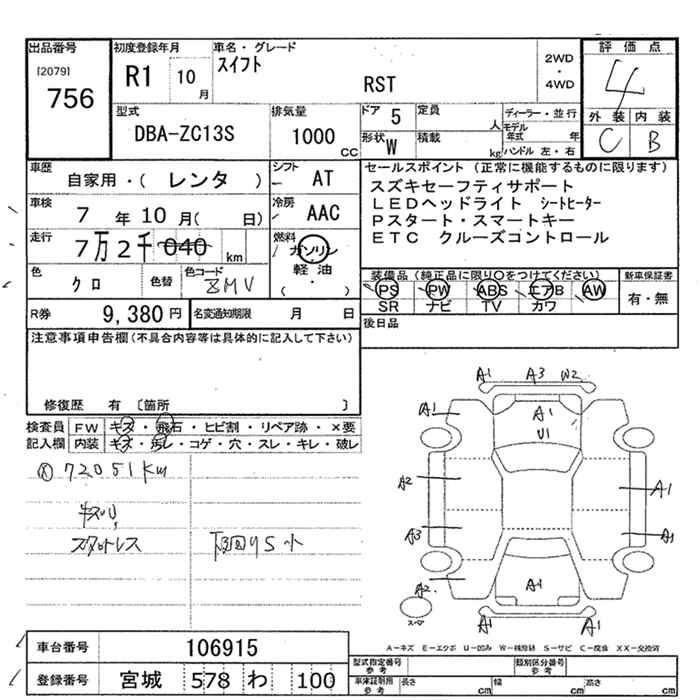 出品番号
[2079]
756
初度登録年月
R1 10 月
車名・グレード
スイフト
RST
2WD
・
4WD
評価点
4
外装 内装
C B
型式
DBA-ZC13S
排気量
1000 cc
ドア 5
定員 人
形状 W
積載 kg
ディーラー・並行
モデル年式 年
ハンドル 左・右
車歴
自家用・( レンタ )
シフト AT
車検
7 年 10 月( 日)
冷房 AAC
走行
7万2千040 km
燃料
ガソリン
軽油
( ・ )
色
クロ
色替
色コード
ZMV
R券 9,380 円
名変通知期限 月 日
セールスポイント (正常に機能するものに限ります)
スズキセーフティサポート
LEDヘッドライト シートヒーター
Pスタート・スマートキー
ETC クルーズコントロール
装備品 (純正品に限り○をつけてください)
PS PW ABS エアB AW
SR ナビ TV カワ
新車保証書
有・無
後日品
注意事項申告欄 (不具合内容等は具体的に記入して下さい)
修復歴 有 〔箇所 〕
検査員記入欄
FW キズ・飛石・ヒビ割・リペア跡・×要
内装 キズ・汚レ・コゲ・穴・スレ・キレ・破レ
72051km
スタッドレス
下回りS小
A1 A3 W2
A1
A1
U1
A2
A1
A3
A1
A2
A1
スペア
A1 A1
A-キズ E-エクボ U-凹み W-補修跡 S-サビ C-腐食 XX-交換済
車台番号 106915
登録番号 宮城 578 わ 100
型式指定番号 参考
類別区分番号 参考
車庫証明用 参考
長さ cm 幅 cm 高さ cm